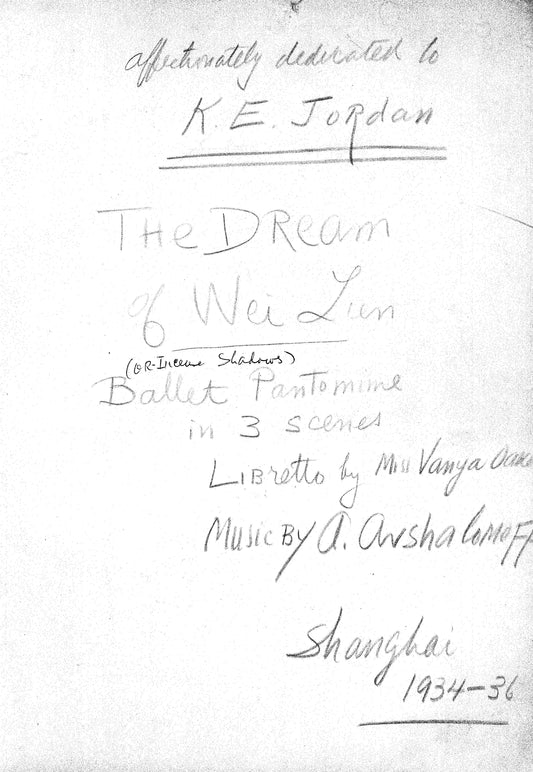 affectionately dedicated to
K. E. Jordan
THE DREAM
of Wei Lun
(OR-Incense Shadows)
Ballet Pantomime
in 3 scenes
LIBretto by Miss Vanya
Music BY A. AvshaloMoFF
Shanghai
1934-36